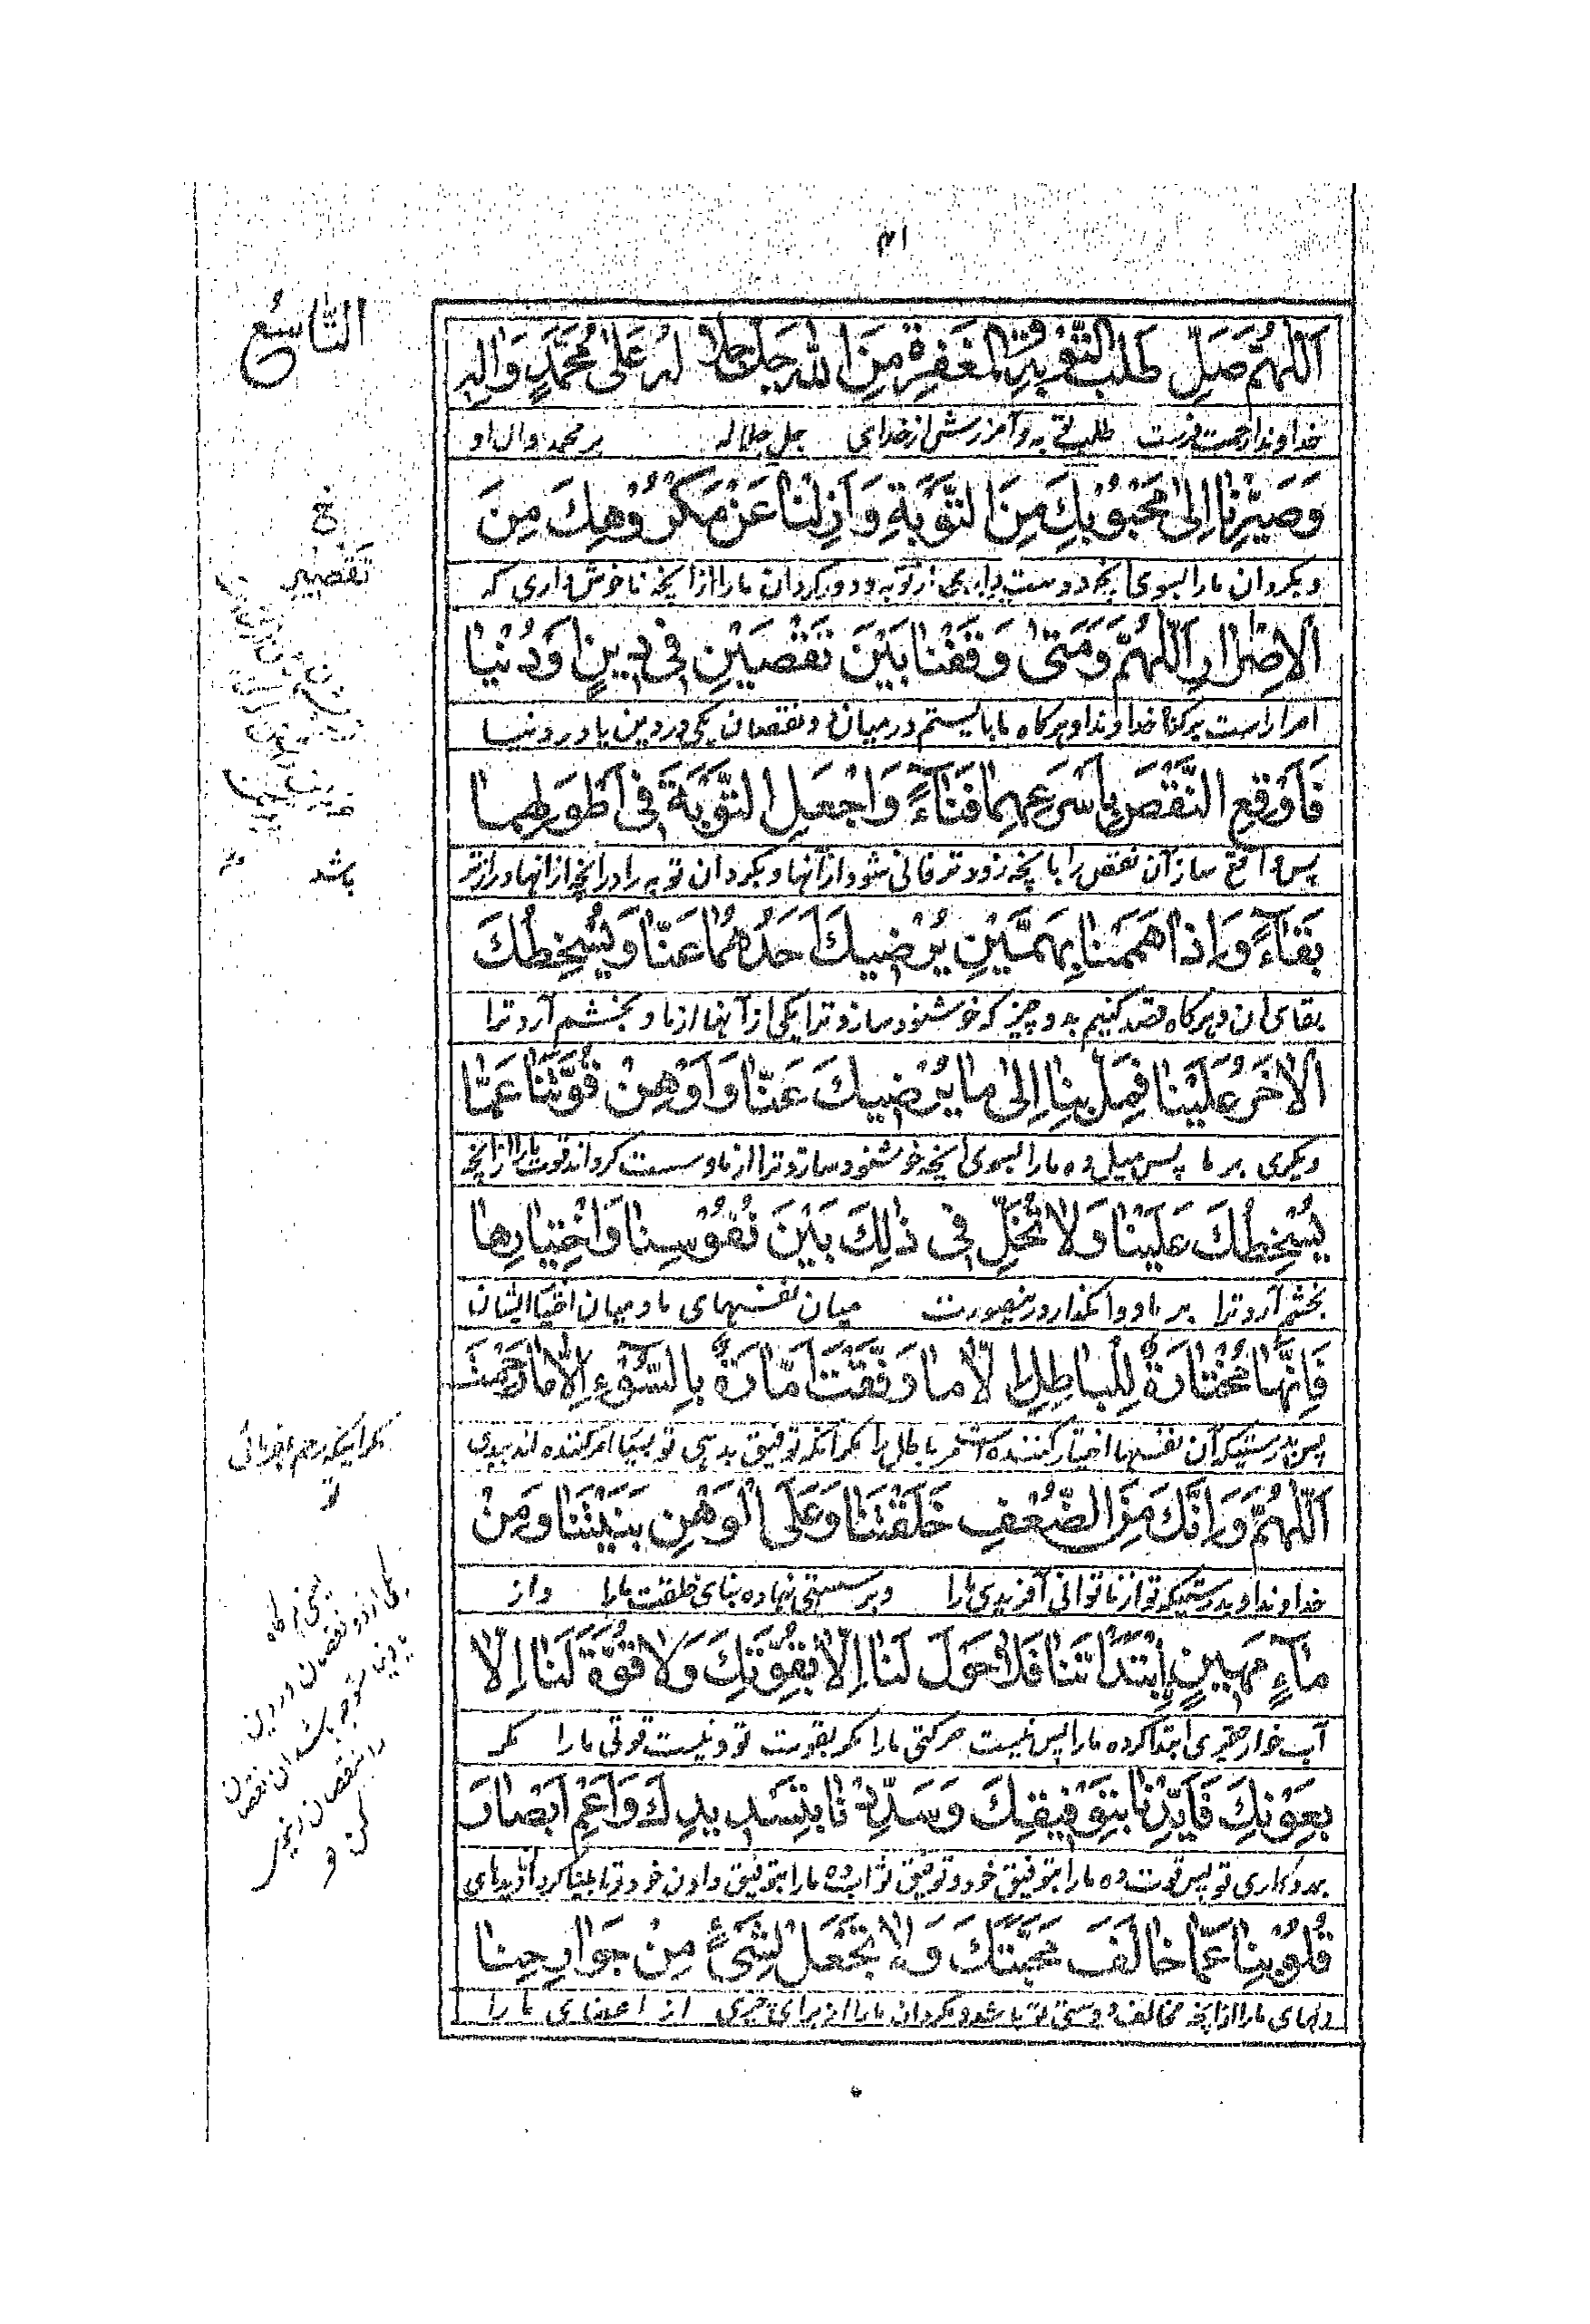 التاسع
اَللّٰهُمَّ صَلِّ طَلَبُ التَّوْبَةِ وَالْمَغْفِرَةِ مِنَ اللّٰهِ جَلَّ جَلالُهُ عَلىٰ مُحَمَّدٍ وَالِهِ
خداوندا رحمت فرست طلب توبه و آمرزش از خدای جل جلاله بر محمد وال او
وَصَيِّرْنا اِلىٰ مَحْبُوْبِكَ مِنَ التَّوْبَةِ وَاَزِلْنا عَنْ مَكْرُوْهِكَ مِنَ
وبگردان مارا بسوی انچه دوست داری از توبه ودور کردان مارا ازانچه ناخوش داری که
الْاِصْرارِ اَللّٰهُمَّ وَمَتىٰ وَقَفْنا بَيْنَ نَقْصَيْنِ فِي دِيْنٍ اَوْ دُنْيا
اصرار است برکناه خداوندا وهرکاه ما بایستیم در میان دو نقصان یکی در دین یا در دنیا
فَاَوْقِعِ النَّقْصَ بِاَسْرَعِهِما فَناءً وَاجْعَلِ التَّوْبَةَ فِي اَطْوَلِهِما
پس واقع ساز آن نقص را بانچه زودتر فانی شود از آنها وبکردان توبه را در انچه از انها درازتر
بَقاءً وَاِذا هَمَمْنا بِهَمَّيْنِ يُرْضِيكَ اَحَدُهُما عَنّا وَيُسْخِطُكَ
بقای ان وهرکاه قصد کنیم بدو چیز که خوشنود سازد ترا یکی از آنها از ما وبخشم آرد ترا
الْاٰخَرُ عَلَيْنا فَمِلْ بِنا اِلىٰ ما يُرْضِيكَ عَنّا وَاَوْهِنْ قُوَّتَنا عَمّا
دیکری بر ما پس میل ده مارا بسوی انچه خوشنود سازد ترا از ما وسست کردان قوت مارا ازانچه
يُسْخِطُكَ عَلَيْنا وَلا تُخَلِّ فِي ذٰلِكَ بَيْنَ نُفُوْسِنا وَاخْتِيارِها
بخشم آرد ترا بر ما ووامکذار درینصورت میان نفسهای ما ومیان اختیار ایشان
فَاِنَّها مُخْتارَةٌ لِلْباطِلِ اِلّا ما وَفَّقْتَ اَمّارَةٌ بِالسُّوْءِ اِلّا ما رَحِمْتَ
پس بدرستیکه آن نفسها اختیار کننده است مر باطل را مکر آنکه توفیق بدهی تو بسیار امر کننده اند ببدی
مکر اینکه رحم فرمائی
تو
اَللّٰهُمَّ وَاِنَّكَ مِنَ الضُّعْفِ خَلَقْتَنا وَعَلَى الْوَهْنِ بَنَيْتَنا وَمِنْ
خداوندا وبدرستیکه تو از ناتوانی آفریدی مارا وبر سستی نهاده بنای خلقت مارا واز
ماءٍ مَهِينٍ اِبْتَدَاْتَنا فَلا حَوْلَ لَنا اِلّا بِقُوَّتِكَ وَلا قُوَّةَ لَنا اِلّا
آب خوار حقیری ابتدا کرده مارا پس نیست حرکتی مارا مکر بقوت تو ونیست قوتی مارا مکر
بِعَوْنِكَ فَاَيِّدْنا بِتَوْفِيقِكَ وَسَدِّدْنا بِتَسْدِيدِكَ وَاَعْمِ اَبْصارَ
بمددکاری تو پس قوت ده مارا بتوفیق خود
قُلُوْبِنا عَمّا خالَفَ مَحَبَّتَكَ وَلا تَجْعَلْ لِشَيْءٍ مِنْ جَوارِحِنا
دلهای مارا ازانچه مخالف دوستی تو باشد ومکردان مارا از برای چیزی از اعضای مارا